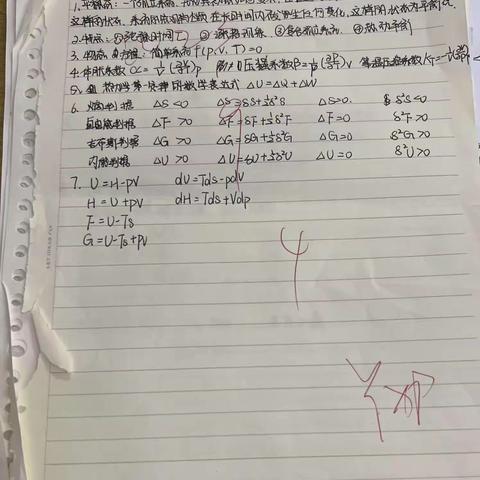 1.平衡态：一个孤立系统
这样的状态，系统的各种宏观性质在长时间内不发生任何变化，这样的状态为平衡状态.
2.特点：①弛豫时间 ②涨落现象 ③孤立系统 ④热动平衡
3.物态方程：简单系统f(p.V.T)=0
4.体胀系数α=1/V(∂V/∂T)p 压强系数β=1/p(∂p/∂T)v 等温压缩系数KT=-1/V(∂V/∂p)T
5. 热力学第一定律的数学表达式 ΔU=ΔQ+ΔW
6. 熵判据 ΔS<0 ΔS=δS+½δ²S ΔS=0. δ²S<0
自由能判据 ΔF>0 ΔF=δF+½δ²F ΔF=0 δ²F>0
吉布斯判据 ΔG>0 ΔG=δG+½δ²G ΔG=0 δ²G>0
内能判据 ΔU>0 ΔU=δU+½δ²U ΔU=0 δ²U>0
7. U=H-pV dU=Tds-pdV
H=U+pV dH=Tds+Vdp
F=U-Ts
G=U-Ts+pV